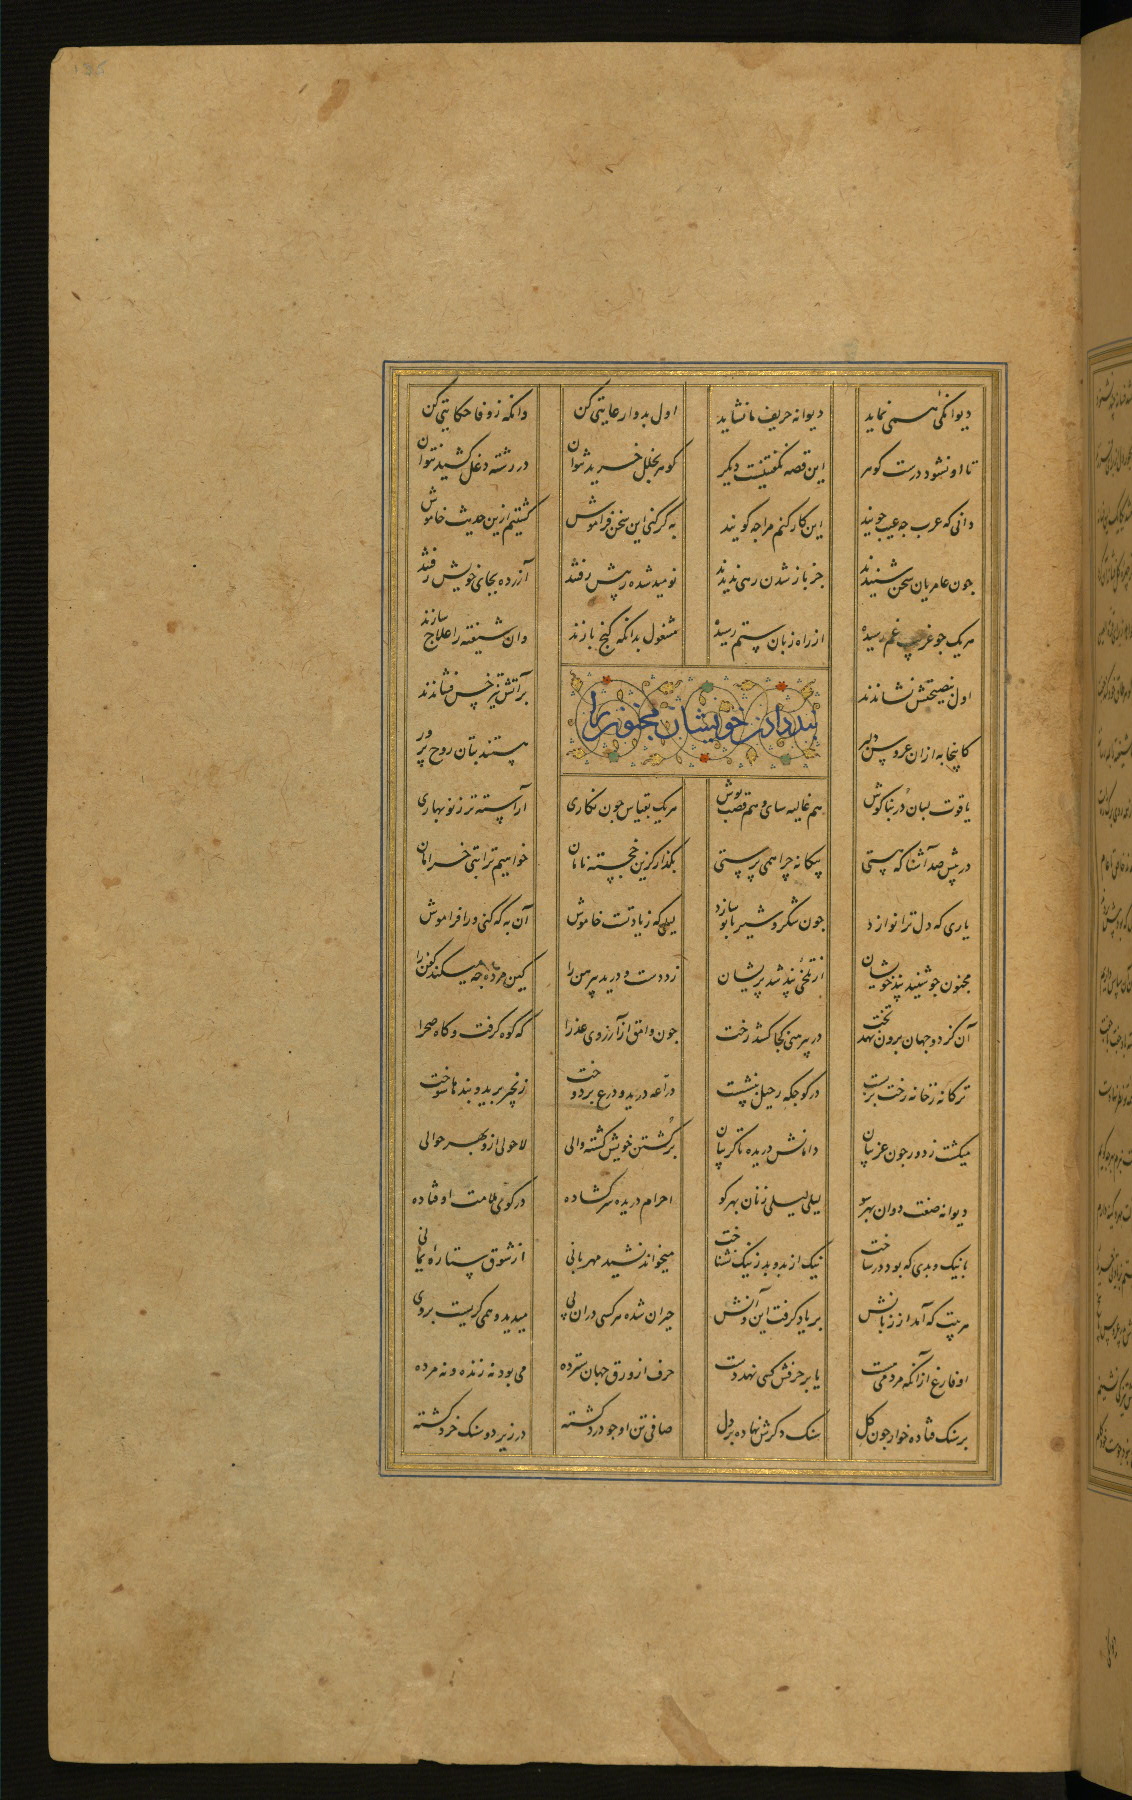 دیوانگی همی نماید دیوانه حریف ما نشاید اول بدوا رعایتی کن وانگه ز وفا حکایتی کن
تا او نشود درست گوهر این قصه نگفتنیست دیگر گوهر بخلل خرید نتوان در رشته دغل کشید نتوان
دانی که عرب چه عیب جویند این کار کنم مرا چه گویند به گر کنی این سخن فراموش گشتیم ازین حدیث خاموش
چون عامریان سخن شنیدند جز باز شدن رهی ندیدند نومید شده ز پیش رفتند آزرده بجای خویش رفتند
هریک چو غریب غم رسیده از راه زبان ستم رسیده مشغول بدانکه گنج بازند وان شیفته را علاج سازند
اول بنصیحتش نشاندند بر آتش تیز خس فشاندند
پند دادن خویشان مجنون را
کاینجا به از ان عروس دلبر هستند بتان روح پرور
یاقوت لبان در بناگوش هم غالیه سای و هم قصب پوش هریک بقیاس چون نگاری آراسته تر ز نوبهاری
در پیش صد آشنا که هستی بیگانه چرا همی پرستی بگذار کزین خجسته نامان خواهیم ترا بتی خرامان
یاری که دل ترا نوازد چون شکر و شیر با تو سازد لیلی که ز یاد تست خاموش آن به که کنی ورا فراموش
مجنون چو شنید پند خویشان از تلخی پند شد پریشان زد دست و درید پیرهن را کین مرده چه میکند کفن را
آن کز دو جهان برون نهد تخت در پیرهنی کجا کشد رخت چون وامق از آرزوی عذرا گه کوه گرفت و گاه صحرا
ترکانه ز خانه رخت بربست در کوچگه رحیل بنشست دراعه درید و درع بردوخت زنجیر برید و بندها سوخت
میگشت ز دور چون غریبان دامانش دریده تا گریبان برگشتن خویش گشته والی لاحول ازو بهر حوالی
دیوانه صفت دوان بهر سو لیلی لیلی زنان بهر کو احرام دریده سر گشاده در کوی ملامت اوفتاده
با نیک و بدی که بود درساخت نیک از بد و بد ز نیک نشناخت میخواند نشید مهربانی از شوق ستاره یمانی
هر بیت که آمد از زبانش بر یاد گرفت این و آنش حیران شده هر کسی در ان پی میدید و همی گریست بر وی
او فارغ از آنکه مردمی هست یا بر حرفش کسی نهد دست حرف از ورق جهان سترده می بود نه زنده و نه مرده
بر سنگ فتاده خوار چون گل سنگ دگرش نهاده بر دل صافی تن او چو درد گشته در زیر دو سنگ خرد گشته